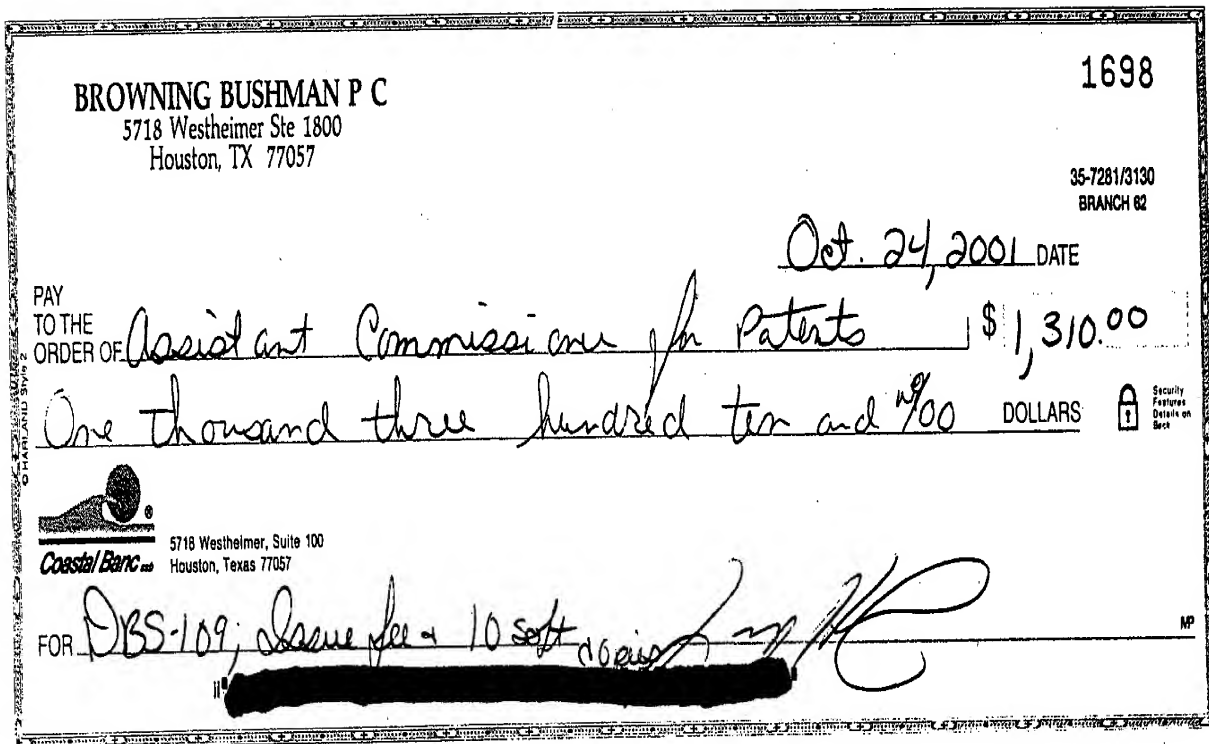 1698
BROWNING BUSHMAN P C
5718 Westheimer Ste 1800
Houston, TX 77057
35-7281/3130
BRANCH 62
Oct. 24, 2001 DATE
PAY
TO THE
ORDER OF Assistant Commissioner for Patents $ 1,310.00
One thousand three hundred ten and no/00 DOLLARS
Security
Features
Details on
Back
© HARLAND Style 2
Coastal Banc ssb
5718 Westheimer, Suite 100
Houston, Texas 77057
FOR DBS-109; Issue fee + 10 soft copies
MP